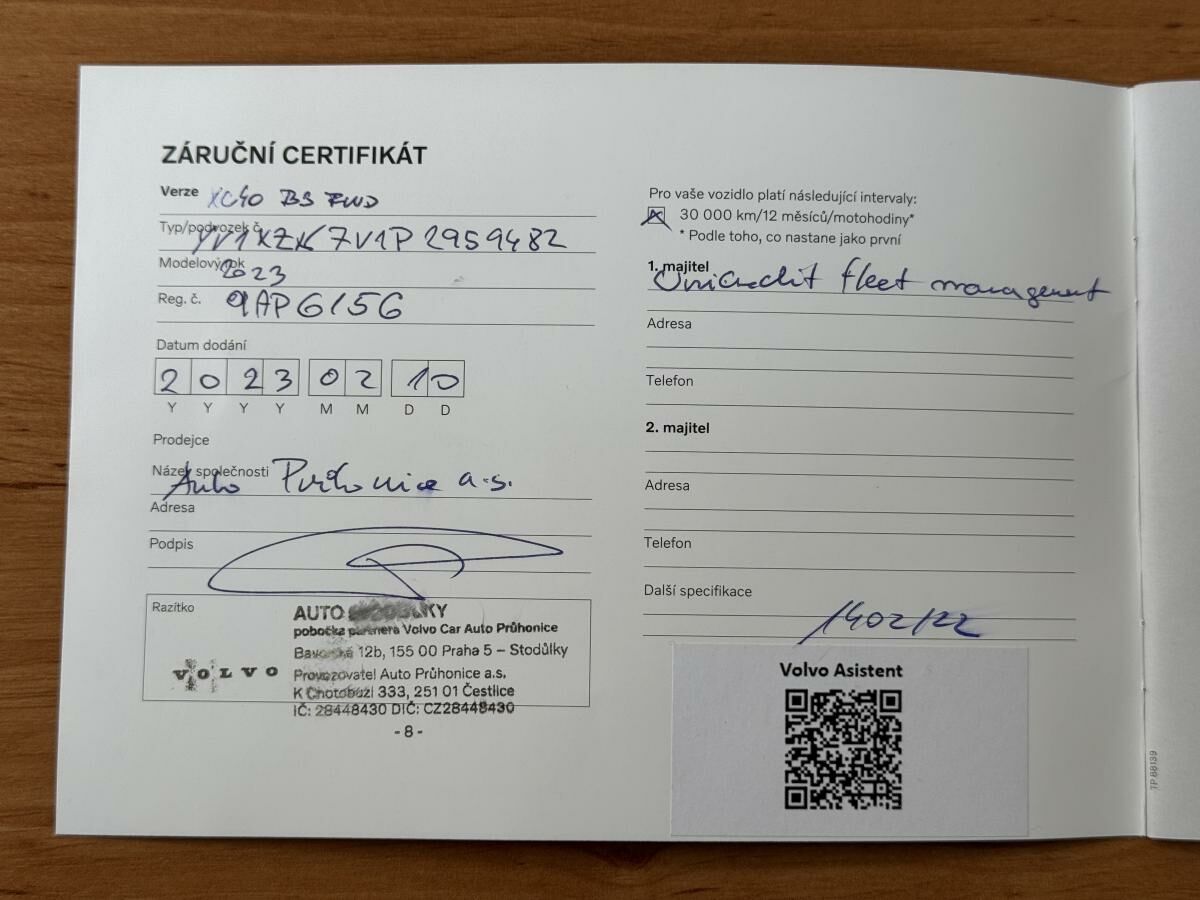 ZÁRUČNÍ CERTIFIKÁT
Verze XC40 B3 FWD
Typ/podvozek č. YV1XZK7V1P2959482
Modelový rok 2023
Reg. č. 9AP6156
Datum dodání
2 0 2 3 0 2 1 0
Y Y Y Y M M D D
Prodejce
Název společnosti Auto Průhonice a.s.
Adresa
Podpis
Razítko
AUTO STODŮLKY
pobočka partnera Volvo Car Auto Průhonice
Bavorská 12b, 155 00 Praha 5 – Stodůlky
VOLVO
Provozovatel Auto Průhonice a.s.
K Chotobuzi 333, 251 01 Čestlice
IČ: 28448430 DIČ: CZ28448430
- 8 -
Pro vaše vozidlo platí následující intervaly:
30 000 km/12 měsíců/motohodiny*
* Podle toho, co nastane jako první
1. majitel Unicredit fleet management
Adresa
Telefon
2. majitel
Adresa
Telefon
Další specifikace
1402/22
Volvo Asistent
TP 88139